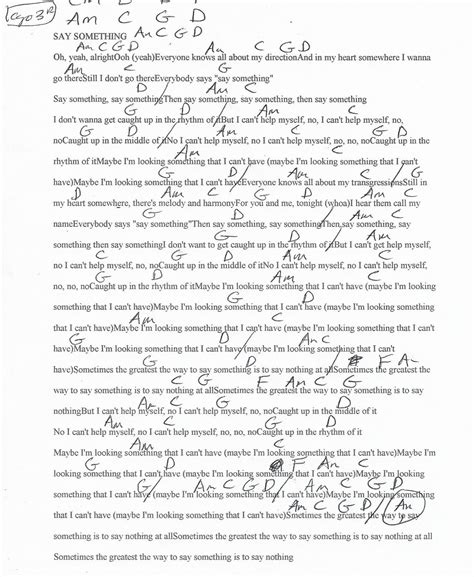 Capo 3rd Am C G D
SAY SOMETHING Am C G D
Am C G D Am C G D
Oh, yeah, alrightOoh (yeah)Everyone knows all about my directionAnd in my heart somewhere I wanna
Am C G
go thereStill I don't go thereEverybody says "say something"
D Am C
Say something, say somethingThen say something, say something, then say something
G D Am C
I don't wanna get caught up in the rhythm of itBut I can't help myself, no, I can't help myself, no,
G D Am C G D
noCaught up in the middle of itNo I can't help myself, no I can't help myself, no, no, noCaught up in the
Am C
rhythm of itMaybe I'm looking something that I can't have (maybe I'm looking something that I can't
G D Am C
have)Maybe I'm looking something that I can't haveEveryone knows all about my transgressionsStill in
G D Am C
my heart somewhere, there's melody and harmonyFor you and me, tonight (whoa)I hear them call my
G D Am C
nameEverybody says "say something"Then say something, say somethingThen say something, say
G D Am
something then say somethingI don't want to get caught up in the rhythm of itBut I can't get help myself,
C G D Am C
no I can't help myself, no, noCaught up in the middle of itNo I can't help myself, no I can't help myself,
G D Am C
no, no, noCaught up in the rhythm of itMaybe I'm looking something that I can't have (maybe I'm looking
G D
something that I can't have)Maybe I'm looking something that I can't have (maybe I'm looking something
Am C
that I can't have)Maybe I'm looking something that I can't have (maybe I'm looking something that I can't
G D Am C
have)Maybe I'm looking something that I can't have (maybe I'm looking something that I can't
G D F Am
have)Sometimes the greatest the way to say something is to say nothing at allSometimes the greatest the
C G F Am C G
way to say something is to say nothing at allSometimes the greatest the way to say something is to say
Am C G D
nothingBut I can't help myself, no I can't help myself, no, noCaught up in the middle of it
Am C G D
No I can't help myself, no I can't help myself, no, no, noCaught up in the rhythm of it
Am C
Maybe I'm looking something that I can't have (maybe I'm looking something that I can't have)Maybe I'm
G D F Am C
looking something that I can't have (maybe I'm looking something that I can't have)Maybe I'm looking
G Am C G D / Am C G D
something that I can't have (maybe I'm looking something that I can't have)Maybe I'm looking something
Am C G D / Am
that I can't have (maybe I'm looking something that I can't have)Smetimes the greatest the way to say
something is to say nothing at allSometimes the greatest the way to say something is to say nothing at all
Sometimes the greatest the way to say something is to say nothing